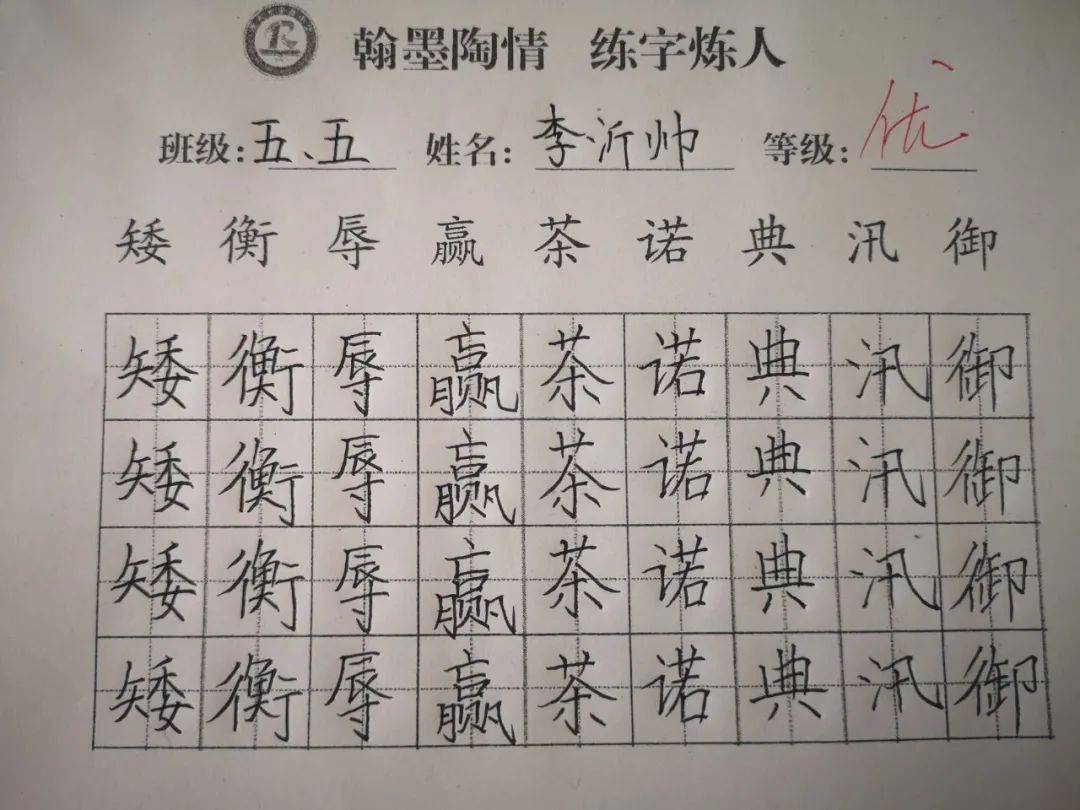 翰墨陶情 练字炼人
班级:五、五 姓名:李沂帅 等级:优
矮 衡 辱 赢 茶 诺 典 汛 御
矮 衡 辱 赢 茶 诺 典 汛 御
矮 衡 辱 赢 茶 诺 典 汛 御
矮 衡 辱 赢 茶 诺 典 汛 御
矮 衡 辱 赢 茶 诺 典 汛 御